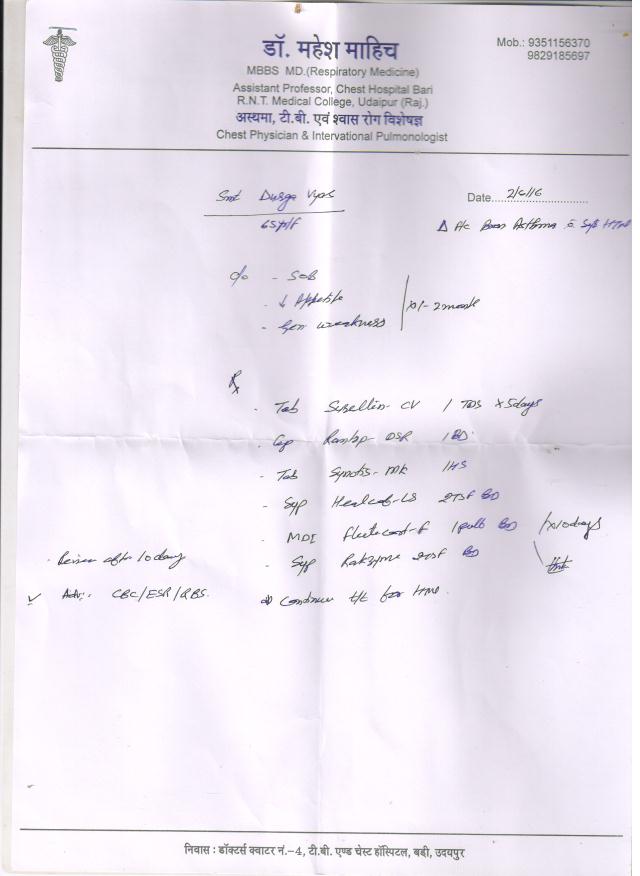 डॉ. महेश माहिच
MBBS MD.(Respiratory Medicine)
Assistant Professor, Chest Hospital Bari
R.N.T. Medical College, Udaipur (Raj.)
अस्थमा, टी.बी. एवं श्वास रोग विशेषज्ञ
Chest Physician & Intervational Pulmonologist
Mob.: 9351156370
9829185697
Smt Durga Vyas
Date 2/6/16
65yr/F
Δ A/c Bron Asthma c̄ Sys HTN
c/o - SOB
- ↓ Appetite
- Gen weakness
x1-2month
Rx
- Tab CV 1 TDS x5days
- Cap DSR 1 BD
- Tab MK 1 HS
- Syp LS 2TSF BD
- MDI 1puff BD x10days
- Syp 2TSF BD
- Review after 10 days
✓ Adv:- CBC/ESR/RBS.
Continue t/t for HTN.
निवास : डॉक्टर्स क्वाटर नं.–4, टी.बी. एण्ड चेस्ट हॉस्पिटल, बडी, उदयपुर